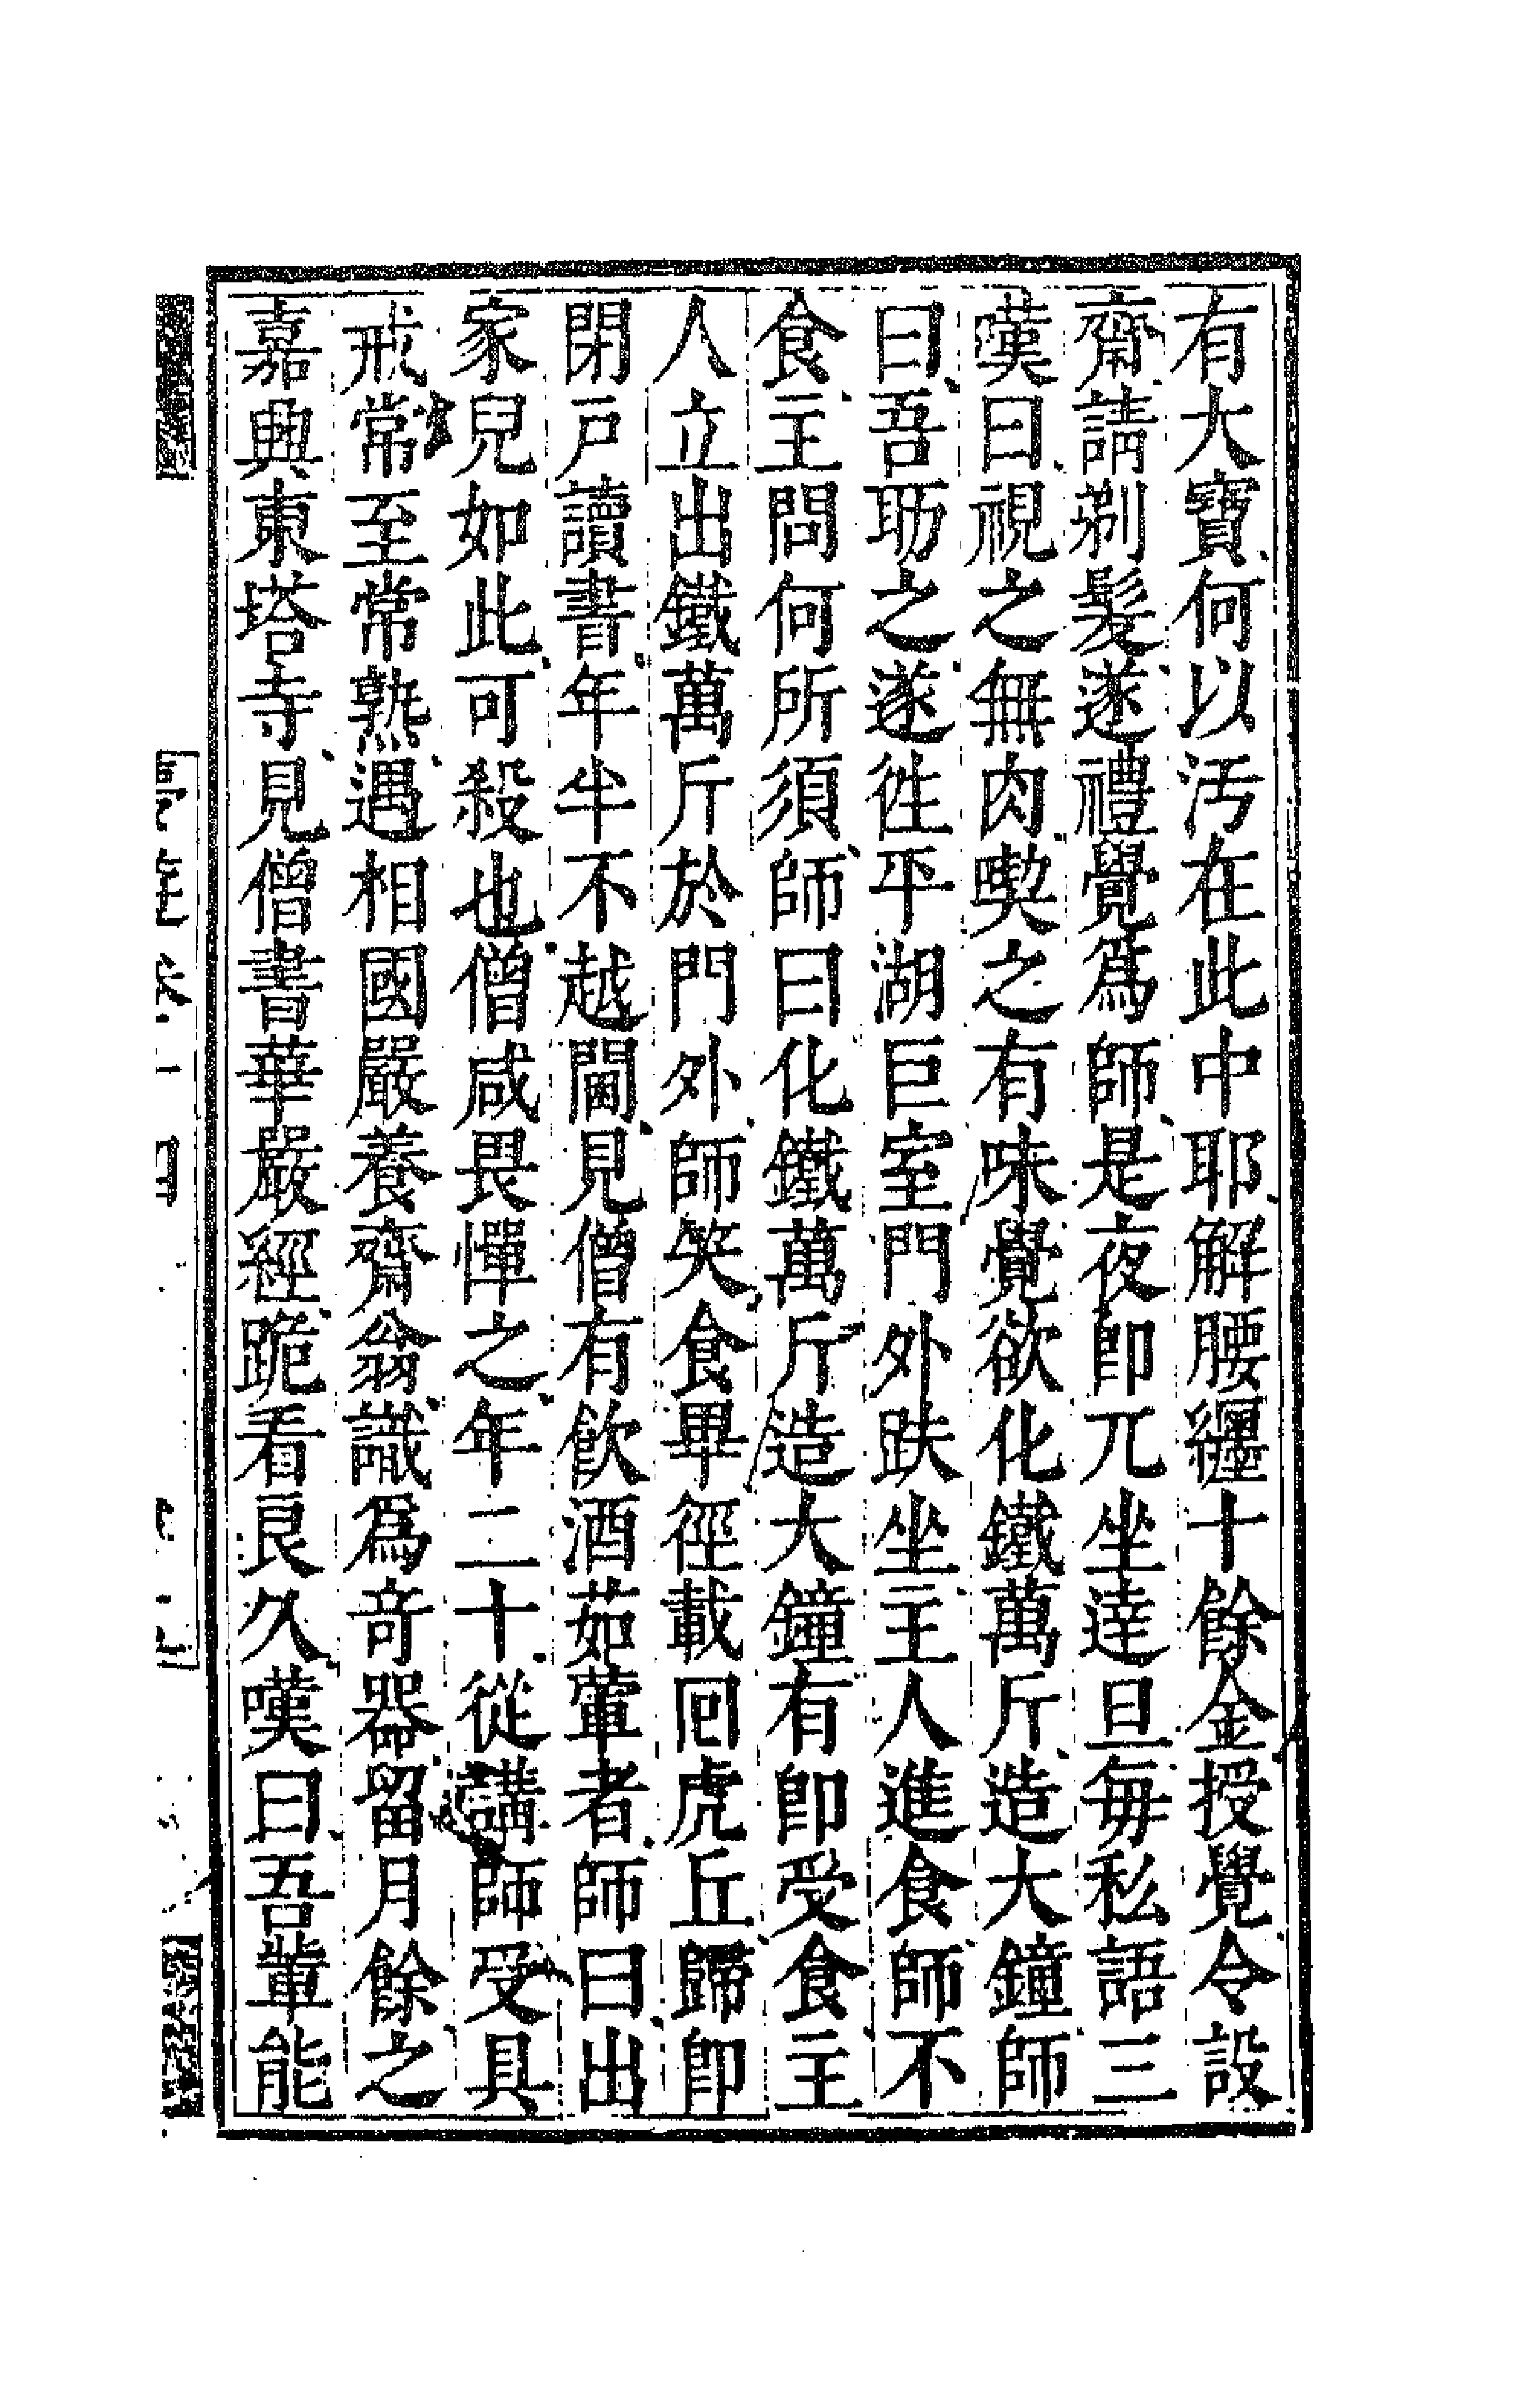 有大寶何以汚在此中耶解腰纒十餘金授覺令設
齋請剃髮遂禮覺爲師是夜卽兀坐達旦每私語三
嘆曰視之無肉喫之有味覺欲化鐵萬斤造大鐘師
曰吾助之遂徃平湖巨室門外趺坐主人進食師不
食主問何所須師曰化鐵萬斤造大鐘有卽受食主
人立出鐵萬斤於門外師笑食畢徑載囘虎丘歸卽
閉戸讀書年半不越閫見僧有飮酒茹葷者師曰出
家兒如此可殺也僧咸畏憚之年二十從講師受具
戒常至常熟遇相國嚴養齋翁識爲竒器留月餘之
嘉興東塔寺見僧書華嚴經跪看良久嘆曰吾輩能